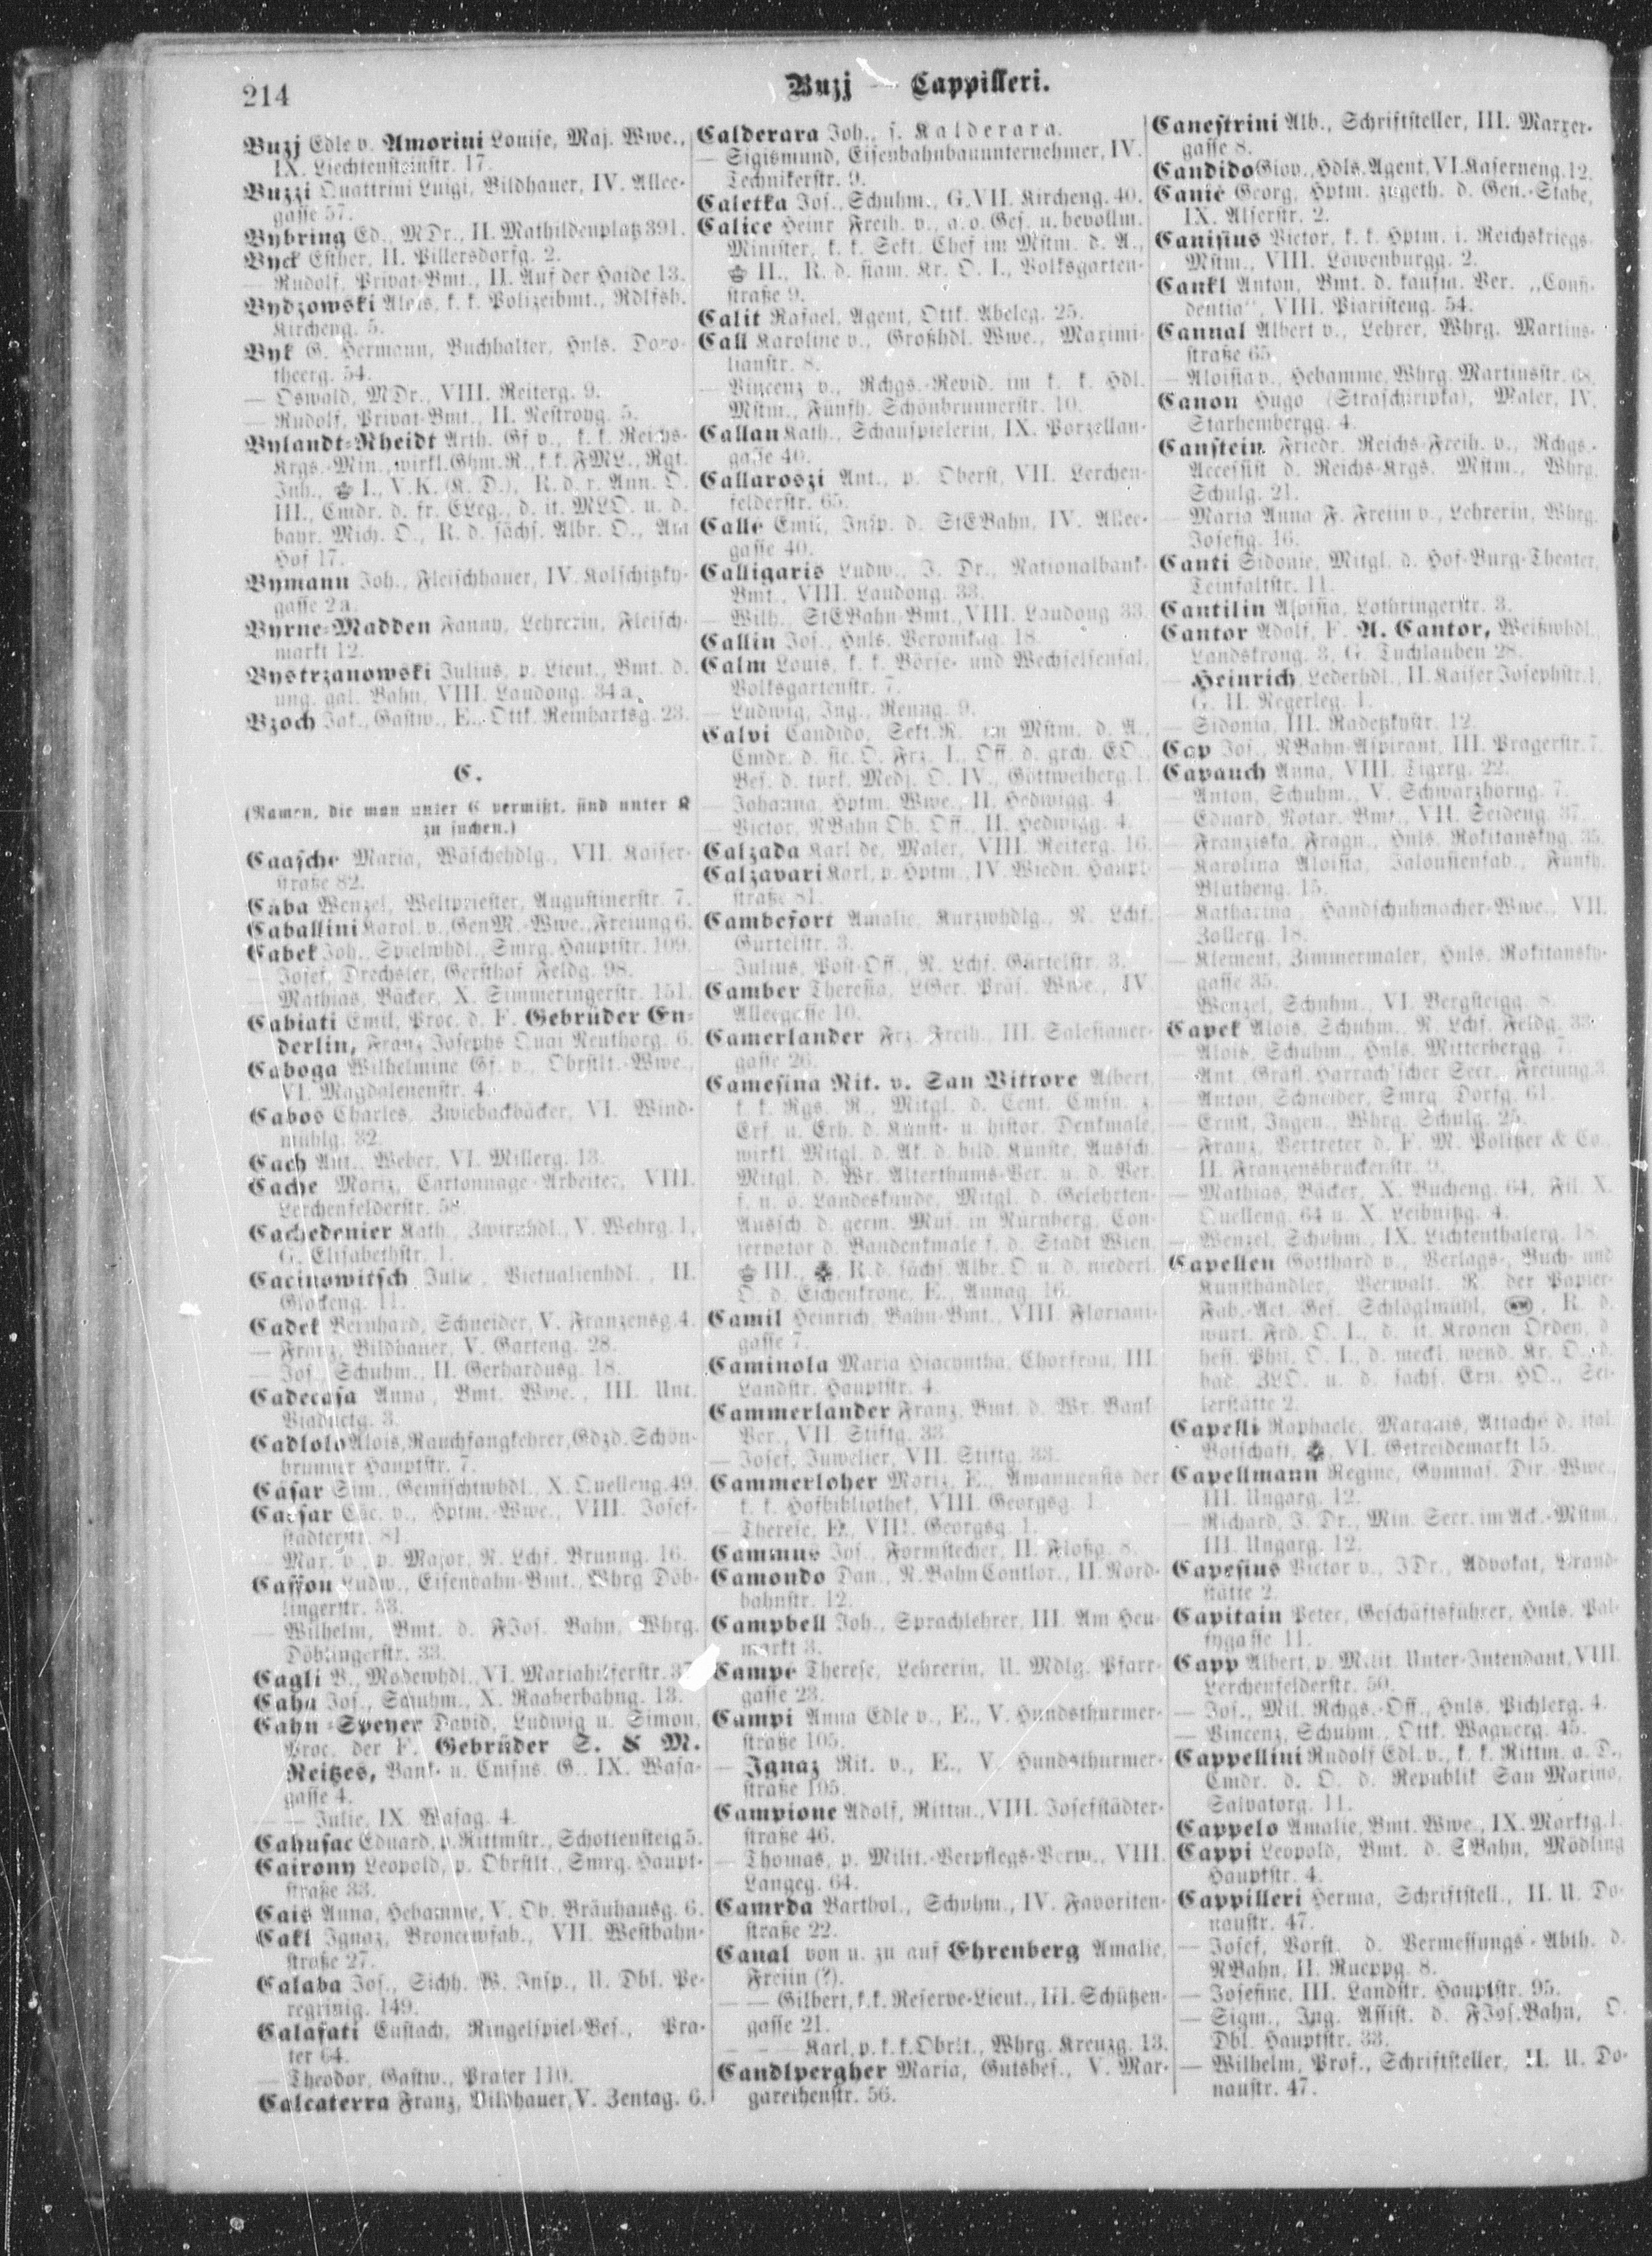 214
Buzj — Cappilleri.
Buzj Edle v. Amorini Louise, Maj. Wwe.,
IX. Liechtensteinstr. 17.
Buzzi Quattrini Luigi, Bildhauer, IV. Allee-
gasse 57.
Bybring Ed., MDr., II. Mathildenplatz 391.
Byck Esther, II. Pillersdorfg. 2.
— Rudolf, Privat-Bmt., II. Auf der Haide 13.
Bydzowski Alois, k. k. Polizeibmt., Rdlfsh.
Kircheng. 5.
Byk G. Hermann, Buchhalter, Hnls. Doro-
theerg. 54.
— Oswald, MDr., VIII. Reiterg. 9.
— Rudolf, Privat-Bmt., II. Nestroyg. 5.
Bylandt-Rheidt Arth. Gf v., k. k. Reichs-
Krgs.-Min., wirkl. Ghm. R., k. k. FML., Rgt.
Inh., I., V. K. (K. D.), R. d. r. Ann. O.
III., Cmdr. d. fr. ELeg., d. it. MLO. u. d.
bayr. Mich. O., R. d. sächs. Albr. O., Am
Hof 17.
Bymann Joh., Fleischhauer, IV. Kolschitzky-
gasse 2a.
Byrne-Madden Fanny, Lehrerin, Fleisch-
markt 12.
Bystrzanowski Julius, p. Lieut., Bmt. d.
ung. gal. Bahn, VIII. Laudong. 34a.
Bzoch Jak., Gastw., E., Ottk. Reinhartsg. 23.
C.
(Namen, die man unter C vermißt, sind unter K
zu suchen.)
Caasche Maria, Wäschehdlg., VII. Kaiser-
straße 82.
Caba Wenzel, Weltpriester, Augustinerstr. 7.
Caballini Karol. v., GenM.-Wwe., Freiung 6.
Cabek Joh., Spielwhdl., Smrg. Hauptstr. 109.
— Josef, Drechsler, Gersthof Feldg. 98.
— Mathias, Bäcker, X. Simmeringerstr. 151.
Cabiati Emil, Proc. d. F. Gebrüder En-
derlin, Franz Josephs Quai Neuthorg. 6.
Caboga Wilhelmine Gf. v., Obrstlt.-Wwe.,
VI. Magdalenenstr. 4.
Cabos Charles, Zwiebackbäcker, VI. Wind-
mühlg. 32.
Cach Ant., Weber, VI. Millerg. 13.
Cache Moriz, Cartonnage-Arbeiter, VIII.
Lerchenfelderstr. 58.
Cachedenier Kath., Zwirnhdl., V. Wehrg. 1,
G. Elisabethstr. 1.
Cacinowitsch Julie, Victualienhdl., II.
Glockeng. 11.
Cadek Bernhard, Schneider, V. Franzensg. 4.
— Franz, Bildhauer, V. Garteng. 28.
— Jos., Schuhm., II. Gerhardusg. 18.
Cadecasa Anna, Bmt. Wwe., III. Unt.
Viaductg. 3.
Cadlolo Alois, Rauchfangkehrer, Gdzd. Schön-
brunner Hauptstr. 7.
Cäsar Sim., Gemischtwhdl., X. Quelleng. 49.
Caesar v., Hptm.-Wwe., VIII. Josef-
städterstr. 81.
— Max. v., p. Major, N. Lchf. Brunng. 16.
Caffon Ludw., Eisenbahn-Bmt., Whrg. Döb-
lingerstr. 33.
— Wilhelm, Bmt. d. FJos. Bahn, Whrg.
Döblingerstr. 33.
Cagli B., Modewhdl., VI. Mariahilferstr.
Cahn Jos., Schuhm., X. Raaberbahng. 13.
Cahn-Speyer David, Ludwig u. Simon,
Proc. der F. Gebrüder S. & M.
Reitzes, Bank- u. Cmsns. G., IX. Wasa-
gasse 4.
— — Julie, IX. Wasag. 4.
Cahusac Eduard, p. Rittmstr., Schottensteig 5.
Cairony Leopold, p. Obrstlt., Smrg. Haupt-
straße 33.
Cais Anna, Hebamme, V. Ob. Bräuhausg. 6.
Cakl Ignaz, Broncewfab., VII. Westbahn-
straße 27.
Calaba Jos., Sichh. W. Insp., U. Dbl. Pe-
regrinig. 149.
Calafati Eustach, Ringelspiel-Bes., Pra-
ter 64.
— Theodor, Gastw., Prater 110.
Calcaterra Franz, Bildhauer, V. Zentag. 6.
Calderara Joh., s. Kalderara.
— Sigismund, Eisenbahnbauunternehmer, IV.
Technikerstr. 9.
Caletka Jos., Schuhm., G. VII. Kircheng. 40.
Calice Heinr Freih. v., a. o. Ges. u. bevollm.
Minister, k. k. Sekt. Chef im Mstm. d. A.,
II., R. d. siam. Kr. O. I., Volksgarten-
straße 9.
Calit Rafael, Agent, Ottk. Abeleg. 25.
Call Karoline v., Großhdl. Wwe., Maximi-
lianstr. 8.
— Vincenz v., Rchgs.-Revid. im k. k. Hdl.
Mstm., Fünfh. Schönbrunnerstr. 10.
Callan Kath., Schauspielerin, IX. Porzellan-
gasse 40.
Callaroszi Ant., p. Oberst, VII. Lerchen-
felderstr. 65.
Calle Emil, Insp. d. StEBahn, IV. Allee-
gasse 40.
Calligaris Ludw., J. Dr., Nationalbank-
Bmt., VIII. Laudong. 33.
— Wilh., StEBahn-Bmt., VIII. Laudong 33.
Callin Jos., Hnls. Veronikag. 18.
Calm Louis, k. k. Börse- und Wechselsensal,
Volksgartenstr. 7.
— Ludwig, Ing., Renng. 9.
Calvi Candido, Sekt. R. im Mstm. d. A.,
Cmdr. d. sic. O. Frz. I., Off. d. grch. EO.,
Bes. d. türk. Medj. O. IV., Göttweiherg. 1.
— Johanna, Hptm. Wwe., II. Hedwigg. 4.
— Victor, NBahn Ob. Off., II. Hedwigg. 4.
Calzada Karl de, Maler, VIII. Reiterg. 16.
Calzavari Karl, p. Hptm., IV. Wiedn. Haupt-
straße 81.
Cambefort Amalie, Kurzwhdlg., N. Lchf.
Gürtelstr. 3.
— Julius, Post-Off., N. Lchf. Gürtelstr. 3.
Camber Theresia, LGer. Präs. Wwe., IV.
Alleegasse 10.
Camerlander Frz. Freih., III. Salesianer-
gasse 26.
Camesina Rit. v. San Vittore Albert,
k. k. Rgs. R., Mitgl. d. Cent. Cmsn. z.
Erf. u. Erh. d. Kunst- u. histor. Denkmale,
wirkl. Mitgl. d. Ak. d. bild. Künste, Aussch.
Mitgl. d. Wr. Alterthums-Ver. u. d. Ver.
f. n. ö. Landeskunde, Mitgl. d. Gelehrten-
Aussch. d. germ. Mus. in Nürnberg, Con-
servator d. Baudenkmale f. d. Stadt Wien,
III., R. d. sächs. Albr. O. u. d. niederl.
O. d. Eichenkrone, E., Annag. 16.
Camil Heinrich, Bahn-Bmt., VIII. Floriani-
gasse 7.
Caminola Maria Hiacyntha, Chorfrau, III.
Landstr. Hauptstr. 4.
Cammerlander Franz, Bmt. d. Wr. Bank
Ver., VII. Stiftg. 33.
— Josef, Juwelier, VII. Stiftg. 33.
Cammerloher Moriz, E., Amanuensis der
k. k. Hofbibliothek, VIII. Georgsg. 1.
— Therese, E., VIII. Georgsg. 1.
Cammus Jos., Formstecher, II. Floßg. 8.
Camondo Dan., N. Bahn Contlor., II. Nord-
bahnstr. 12.
Campbell Joh., Sprachlehrer, III. Am Heu-
markt 3.
Campe Therese, Lehrerin, U. Mdlg. Pfarr-
gasse 23.
Campi Anna Edle v., E., V. Hundsthurmer-
straße 105.
— Ignaz Rit. v., E., V. Hundsthurmer-
straße 105.
Campione Adolf, Rittm., VIII. Josefstädter-
straße 46.
— Thomas, p. Milit.-Verpflegs-Verw., VIII.
Langeg. 64.
Camrda Barthol., Schuhm., IV. Favoriten-
straße 22.
Canal von u. zu auf Ehrenberg Amalie,
Freiin (?).
— — Gilbert, k. k. Reserve-Lieut., III. Schützen-
gasse 21.
— — — Karl, p. k. k. Obrlt., Whrg. Kreuzg. 13.
Candlpergher Maria, Gutsbes., V. Mar-
garethenstr. 56.
Canestrini Alb., Schriftsteller, III. Marxer-
gasse 8.
Candido Giov., Hdls. Agent, VI. Kaserneng. 12.
Canic Georg, Hptm. zugeth. d. Gen.-Stabe,
IX. Alserstr. 2.
Canisius Victor, k. k. Hptm. i. Reichskriegs-
Mstm., VIII. Löwenburgg. 2.
Cankl Anton, Bmt. d. kaufm. Ver. „Confi-
dentia“, VIII. Piaristeng. 54.
Cannal Albert v., Lehrer, Whrg. Martins-
straße 65.
— Aloisia v., Hebamme, Whrg. Martinsstr. 68.
Canon Hugo (Straschiripka), Maler, IV.
Starhembergg. 4.
Canstein Friedr. Reichs-Freih. v., Rchgs.-
Accessist d. Reichs-Krgs. Mstm., Whrg.
Schulg. 21.
— Maria Anna F. Freiin v., Lehrerin, Whrg.
Josefig. 16.
Canti Sidonie, Mitgl. d. Hof-Burg-Theater,
Teinfaltstr. 11.
Cantilin Aloisia, Lothringerstr. 3.
Cantor Adolf, F. A. Cantor, Weißwhdl.,
Landskrong. 3, G. Tuchlauben 28.
— Heinrich, Lederhdl., II. Kaiser Josephstr. 1,
G. II. Negerleg. 1.
— Sidonia, III. Radetzkystr. 12.
Cap Jos., NBahn-Aspirant, III. Pragerstr. 7.
Capauch Anna, VIII. Tigerg. 22.
— Anton, Schuhm., V. Schwarzhorng. 7.
— Eduard, Notar. Bmt., VII. Seideng. 37.
— Franziska, Fragn., Hnls. Rokitanskyg. 35.
— Karolina Aloisia, Jalousienfab., Fünfh.
Blütheng. 15.
— Katharina, Handschuhmacher-Wwe., VII.
Zollerg. 18.
— Klement, Zimmermaler, Hnls. Rokitansky-
gasse 35.
— Wenzel, Schuhm., VI. Bergsteigg. 8.
Capek Alois, Schuhm., N. Lchf. Feldg. 33.
— Alois, Schuhm., Hnls. Mitterbergg. 7.
— Ant., Gräfl. Harrach'scher Secr., Freiung 3.
— Anton, Schneider, Smrg. Dorfg. 61.
— Ernst, Ingen., Whrg. Schulg. 25.
— Franz, Vertreter d. F. M. Politzer & Co.,
II. Franzensbrückenstr. 9.
— Mathias, Bäcker, X. Bucheng. 64, Fil. X.
Quelleng. 64 u. X. Leibnitzg. 4.
— Wenzel, Schuhm., IX. Lichtenthalerg. 18.
Capellen Gotthard v., Verlags-, Buch- und
Kunsthändler, Verwalt. R. der Papier-
Fab.-Act. Ges. Schlöglmühl, R. d.
würt. Frd. O. I., d. it. Kronen Orden, d.
hess. Phil. O. I., d. meckl. wend. Kr. O., d.
bad. ZLO. u. d. sächs. Ern. HO., Sei-
lerstätte 2.
Capelli Raphaele, Marquis, Attaché d. ital.
Botschaft, VI. Getreidemarkt 15.
Capellmann Regine, Gymnas. Dir.-Wwe.,
III. Ungarg. 12.
— Richard, J. Dr., Min. Secr. im Ack.-Mstm.,
III. Ungarg. 12.
Capesius Victor v., JDr., Advokat, Brand-
stätte 2.
Capitain Peter, Geschäftsführer, Hnls. Pal-
fygasse 11.
Capp Albert, p. Milit. Unter-Intendant, VIII.
Lerchenfelderstr. 50.
— Jos., Mil. Rchgs.-Off., Hnls. Pichlerg. 4.
— Vincenz, Schuhm., Ottk. Wagnerg. 45.
Cappellini Rudolf Edl. v., k. k. Rittm. a. D.,
Cmdr. d. O. d. Republik San Marino,
Salvatorg. 11.
Cappelo Amalie, Bmt. Wwe., IX. Marktg. 1.
Cappi Leopold, Bmt. d. SBahn, Mödling
Hauptstr. 4.
Cappilleri Herma, Schriftstell., II. U. Do-
naustr. 47.
— Josef, Vorst. d. Vermessungs-Abth. d.
NBahn, II. Rueppg. 8.
— Josefine, III. Landstr. Hauptstr. 95.
— Sigm., Ing. Assist. d. FJos. Bahn, O.
Dbl. Hauptstr. 33.
— Wilhelm, Prof., Schriftsteller, II. U. Do-
naustr. 47.